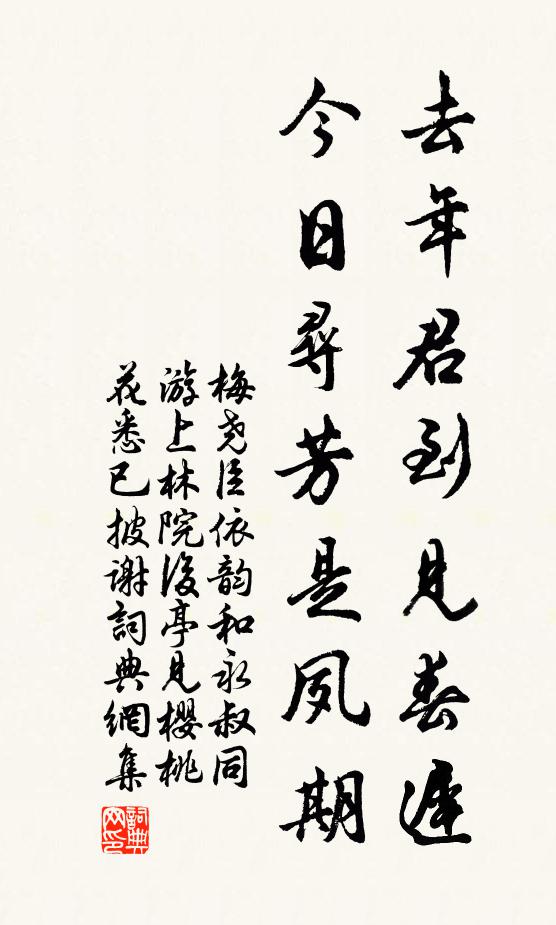 去年君到見春遲
今日尋芳是夙期
梅尧臣依韵和永叔同
游上林院後亭見櫻桃
花悉已披謝詞典網集
詞典
网印